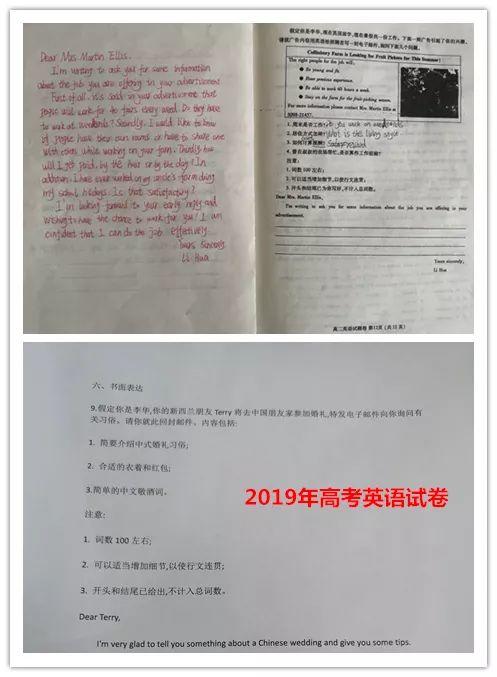 Dear Mrs Martin Ellis.
I'm writing to ask you for some information
about the job you are offering in your advertisement
First of all. it's said in your advertisement that
people will work for 40 hours every week. Do they have
to work at weekends? Secondly. I would like to know
if people have their own rooms or have to share one
with others while working on your farm. Thirdly how
will I get paid, by the hour or by the day? In
addition. I have ever worked on my uncle's farm during
my school holidays. Is that satisfactory?
I'm looking forward to your early reply and
wishing to have the chance to work for you! I am
confident that I can do the job effectively.
Yours Sincerely
Li Hua
假定你是李华,现在英国留学,想在暑假找一份工作。下面一则广告引起了你的兴趣,
请就广告内容用英语给招聘者写一封电子邮件,询问下面几个问题。
Farm is Looking for Fruit Pickers for This Summer!
The right people for the job will:
Be young and fit.
Have previous experience.
Be able to work 40 hours a week.
Stay on the farm for the fruit-picking season.
For more information please contact Mrs. Martin Ellis at
1. 周末是否工作? do you work on weekends
2. 居住方式怎样? What is the living style
3. 如何计算报酬?
4. 曾在叔叔的农场帮忙,是否算作工作经验?
注意:
1. 词数 100 左右;
2. 可以适当增加细节,以使行文连贯;
3. 开头和结尾已为你写好,不计入总词数。
Dear Mrs. Martin Ellis,
I'm writing to ask you for some information about the job you are offering in your
advertisement.
Yours sincerely,
Li Hua
高二英语试题卷 第12页 (共12页)
六、书面表达
9.假定你是李华,你的新西兰朋友 Terry 将去中国朋友家参加婚礼,特发电子邮件向你询问有
关习俗。请你就此回封邮件。内容包括:
1. 简要介绍中式婚礼习俗;
2. 合适的衣着和红包;
3.简单的中文敬酒词。
2019年高考英语试卷
注意:
1. 词数 100 左右;
2. 可以适当增加细节,以使行文连贯;
3. 开头和结尾已给出,不计入总词数。
Dear Terry,
I'm very glad to tell you something about a Chinese wedding and give you some tips.